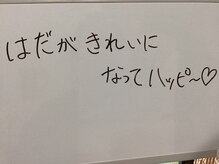 はだが きれいに
なって ハッピ〜♡